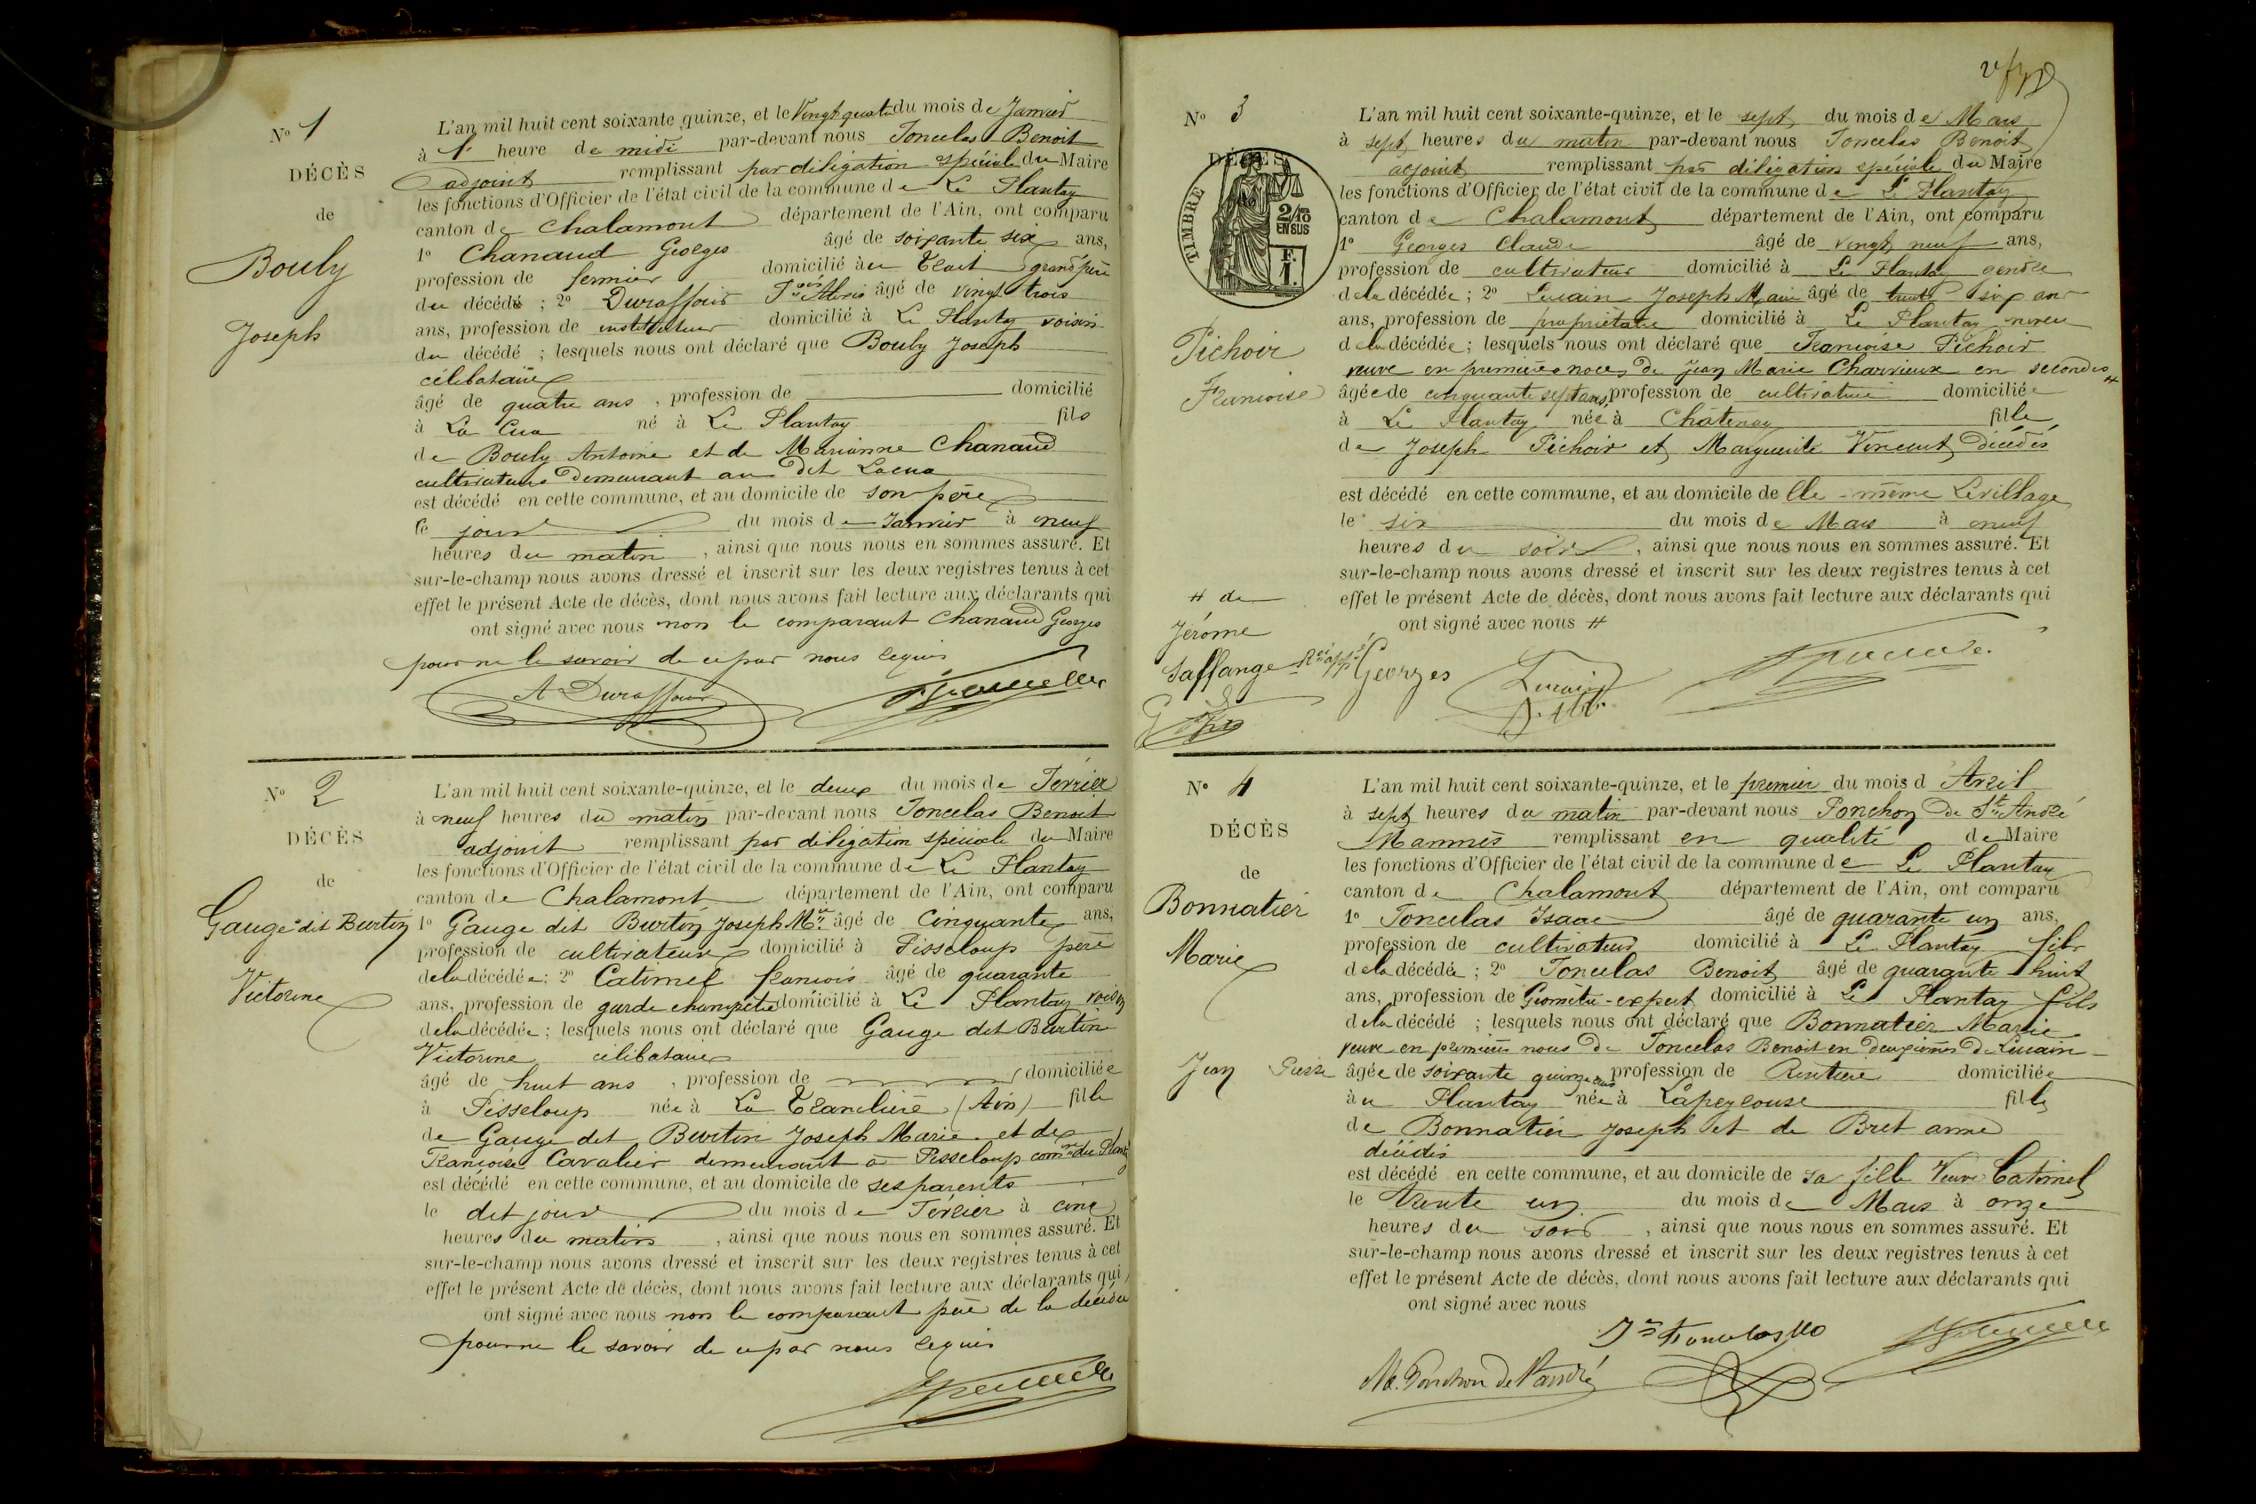 N° 1
DÉCÈS
de
Bouly
Joseph
L'an mil huit cent soixante quinze, et le Vingt quatre du mois de Janvier
à 1 heure de midi par-devant nous Joncelas Benoit
adjoint remplissant par déligation spéciale du Maire
les fonctions d'Officier de l'état civil de la commune de Le Plantay
canton de Chalamont département de l'Ain, ont comparu
1° Chanaud Georges âgé de soixante six ans,
profession de fermier domicilié au grand père
du décédé ; 2° Duraffour Alexis âgé de vingt trois
ans, profession de instituteur domicilié à Le Plantay voisin
du décédé ; lesquels nous ont déclaré que Bouly Joseph
célibataire
âgé de quatre ans , profession de domicilié
à La Cua né à Le Plantay fils
de Bouly Antoine et de Marianne Chanaud
cultivateurs demeurant au dit Lacua
est décédé en cette commune, et au domicile de son père
le jour du mois de Janvier à neuf
heures du matin , ainsi que nous nous en sommes assuré. Et
sur-le-champ nous avons dressé et inscrit sur les deux registres tenus à cet
effet le présent Acte de décès, dont nous avons fait lecture aux déclarants qui
ont signé avec nous non le comparant Chanaud Georges
pour ne le savoir de ce par nous requis
A Duraffour
N° 2
DÉCÈS
de
Gauge dit Burtin
Victorine
L'an mil huit cent soixante-quinze, et le deux du mois de Février
à neuf heures du matin par-devant nous Joncelas Benoit
adjoint remplissant par déligation spéciale du Maire
les fonctions d'Officier de l'état civil de la commune de Le Plantay
canton de Chalamont département de l'Ain, ont comparu
1° Gauge dit Burtin Joseph Mie âgé de Cinquante ans,
profession de cultivateur domicilié à Pisseloup père
de la décédée ; 2° Catimel françois âgé de quarante
ans, profession de garde champêtre domicilié à Le Plantay voisin
de la décédée ; lesquels nous ont déclaré que Gauge dit Burtin
Victorine célibataire
âgé de huit ans , profession de domiciliée
à Pisseloup née à La Tranclière (Ain) fille
de Gauge dit Burtin Joseph Marie et de
Françoise Cavalier demeurant à Pisseloup comne du Plantay
est décédé en cette commune, et au domicile de ses parents
le dit jour du mois de Février à cinq
heures du matin , ainsi que nous nous en sommes assuré. Et
sur-le-champ nous avons dressé et inscrit sur les deux registres tenus à cet
effet le présent Acte de décès, dont nous avons fait lecture aux déclarants qui
ont signé avec nous non le comparant père de la décédée
pour ne le savoir de ce par nous requis
N° 3
DÉCÈS
TIMBRE
2/10
EN SUS
F.
1.
Pichoir
Francoise
L'an mil huit cent soixante-quinze, et le sept du mois de Mars
à sept heures du matin par-devant nous Joncelas Benoit
adjoint remplissant par déligation spéciale du Maire
les fonctions d'Officier de l'état civil de la commune de Le Plantay
canton de Chalamont département de l'Ain, ont comparu
1° Georges Claude âgé de vingt neuf ans,
profession de cultivateur domicilié à Le Plantay gendre
de la décédée ; 2° Lucain Joseph Marie âgé de trente six ans
ans, profession de propriétaire domicilié à Le Plantay neveu
de la décédée ; lesquels nous ont déclaré que Francoise Pichoir
veuve en premières noces de Jean Marie Charrieux en secondes #
âgée de cinquante sept ans profession de cultivatrice domiciliée
à Le Plantay née à Châtenay fille
de Joseph Pichoir et Marguerite Vincent décédés
est décédé en cette commune, et au domicile de elle-même Le village
le six du mois de Mars à neuf
heures du soir , ainsi que nous nous en sommes assuré. Et
sur-le-champ nous avons dressé et inscrit sur les deux registres tenus à cet
effet le présent Acte de décès, dont nous avons fait lecture aux déclarants qui
ont signé avec nous #
# de
Jérome
Saffange
Georges
Lucain
N° 4
DÉCÈS
de
Bonnatier
Marie
L'an mil huit cent soixante-quinze, et le premier du mois d'Avril
à sept heures du matin par-devant nous Ponchon de St André
Mammès remplissant en qualité de Maire
les fonctions d'Officier de l'état civil de la commune de Le Plantay
canton de Chalamont département de l'Ain, ont comparu
1° Joncelas Isaac âgé de quarante un ans,
profession de cultivateur domicilié à Le Plantay fils
de la décédée ; 2° Joncelas Benoit âgé de quarante huit
ans, profession de Géomètre-expert domicilié à Le Plantay fils
de la décédé ; lesquels nous ont déclaré que Bonnatier Marie
veuve en premières noces de Joncelas Benoit en deuxièmes de Lucain
Jean Pierre âgée de soixante quinze ans profession de Rentière domiciliée
au Plantay née à Lapeyrouse fille
de Bonnatier Joseph et de Bret anne
décédés
est décédé en cette commune, et au domicile de sa fille Veuve Catimel
le trente un du mois de Mars à onze
heures du soir , ainsi que nous nous en sommes assuré. Et
sur-le-champ nous avons dressé et inscrit sur les deux registres tenus à cet
effet le présent Acte de décès, dont nous avons fait lecture aux déclarants qui
ont signé avec nous
M. Ponchon de St André